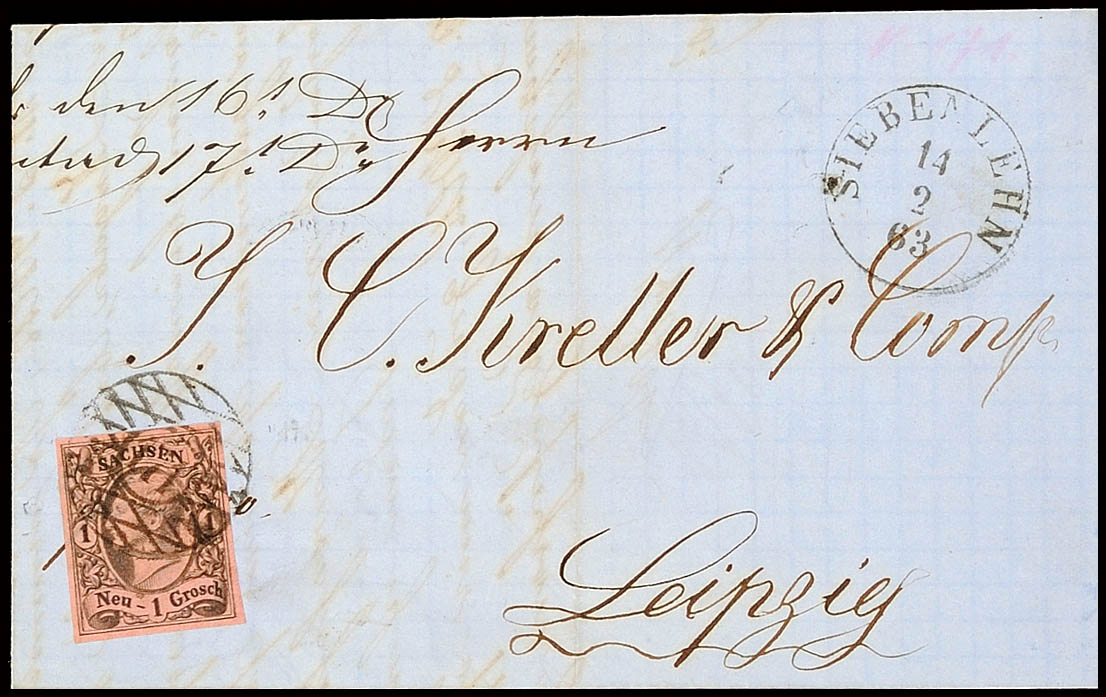 den 16t
17t
Herrn
SIEBENLEHN
14
2
63
J. C. Kretler & Comp
SACHSEN
1 1
Neu-1 Grosch
Leipzig